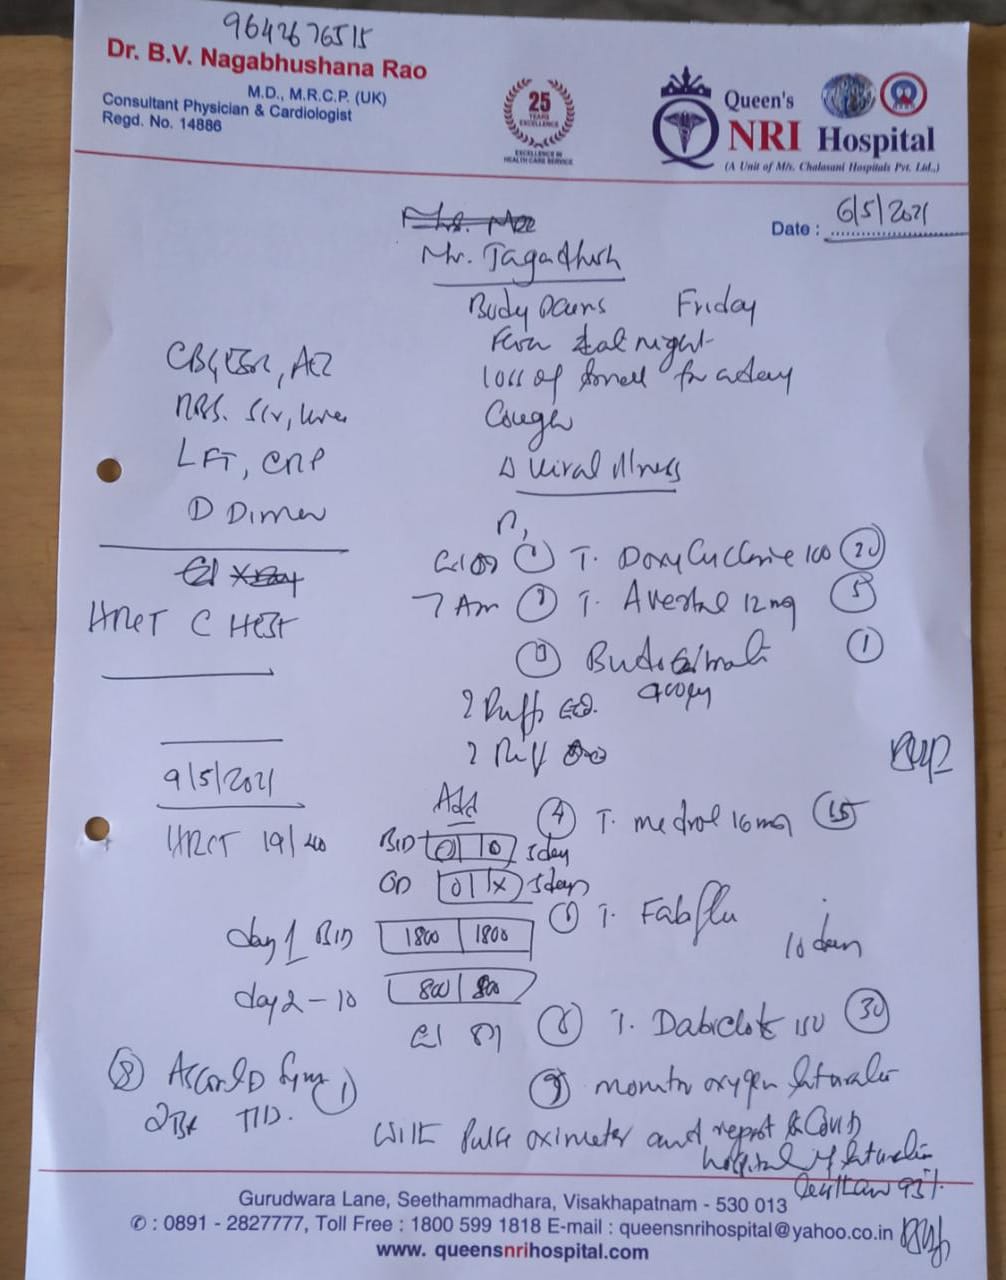 9642676515
Dr. B.V. Nagabhushana Rao
M.D., M.R.C.P. (UK)
Consultant Physician & Cardiologist
Regd. No. 14886
25
YEARS
EXCELLENCE
EXCELLENCE IN
HEALTH CARE SERVICE
Queen's
NRI Hospital
(A Unit of M/s. Chalasani Hospitals Pvt. Ltd.,)
Date : 6/5/2021
Mr. Jagadhish
Body Pains Friday
night
loss of smell for a day
Cough
Δ Viral illness
CBC, ESR,
LFT, CRP
D Dimer
HRCT CHEST
① T. Doxycycline 100 (20)
7 Am T. 12 mg (5)
(1)
2 Puffs
2 Puff
9/5/2021
HRCT 19/40
Add
④ T. medrol 16mg (15)
BID 0 | 0 5 day
OD 0 | x 5 days
T. Fabflu
10 days
day 1 BID 1800 | 1800
day 2 - 10 800 | 800
T. Dabiclot 150 (30)
⑧ Ascoril D Syrup (1)
TID.
⑨ monitor oxygen saturation
with Pulse oximeter and report to Covid
hospital if saturation
less than 93%
Gurudwara Lane, Seethammadhara, Visakhapatnam - 530 013
✆ : 0891 - 2827777, Toll Free : 1800 599 1818 E-mail : queensnrihospital@yahoo.co.in
www. queensnrihospital.com